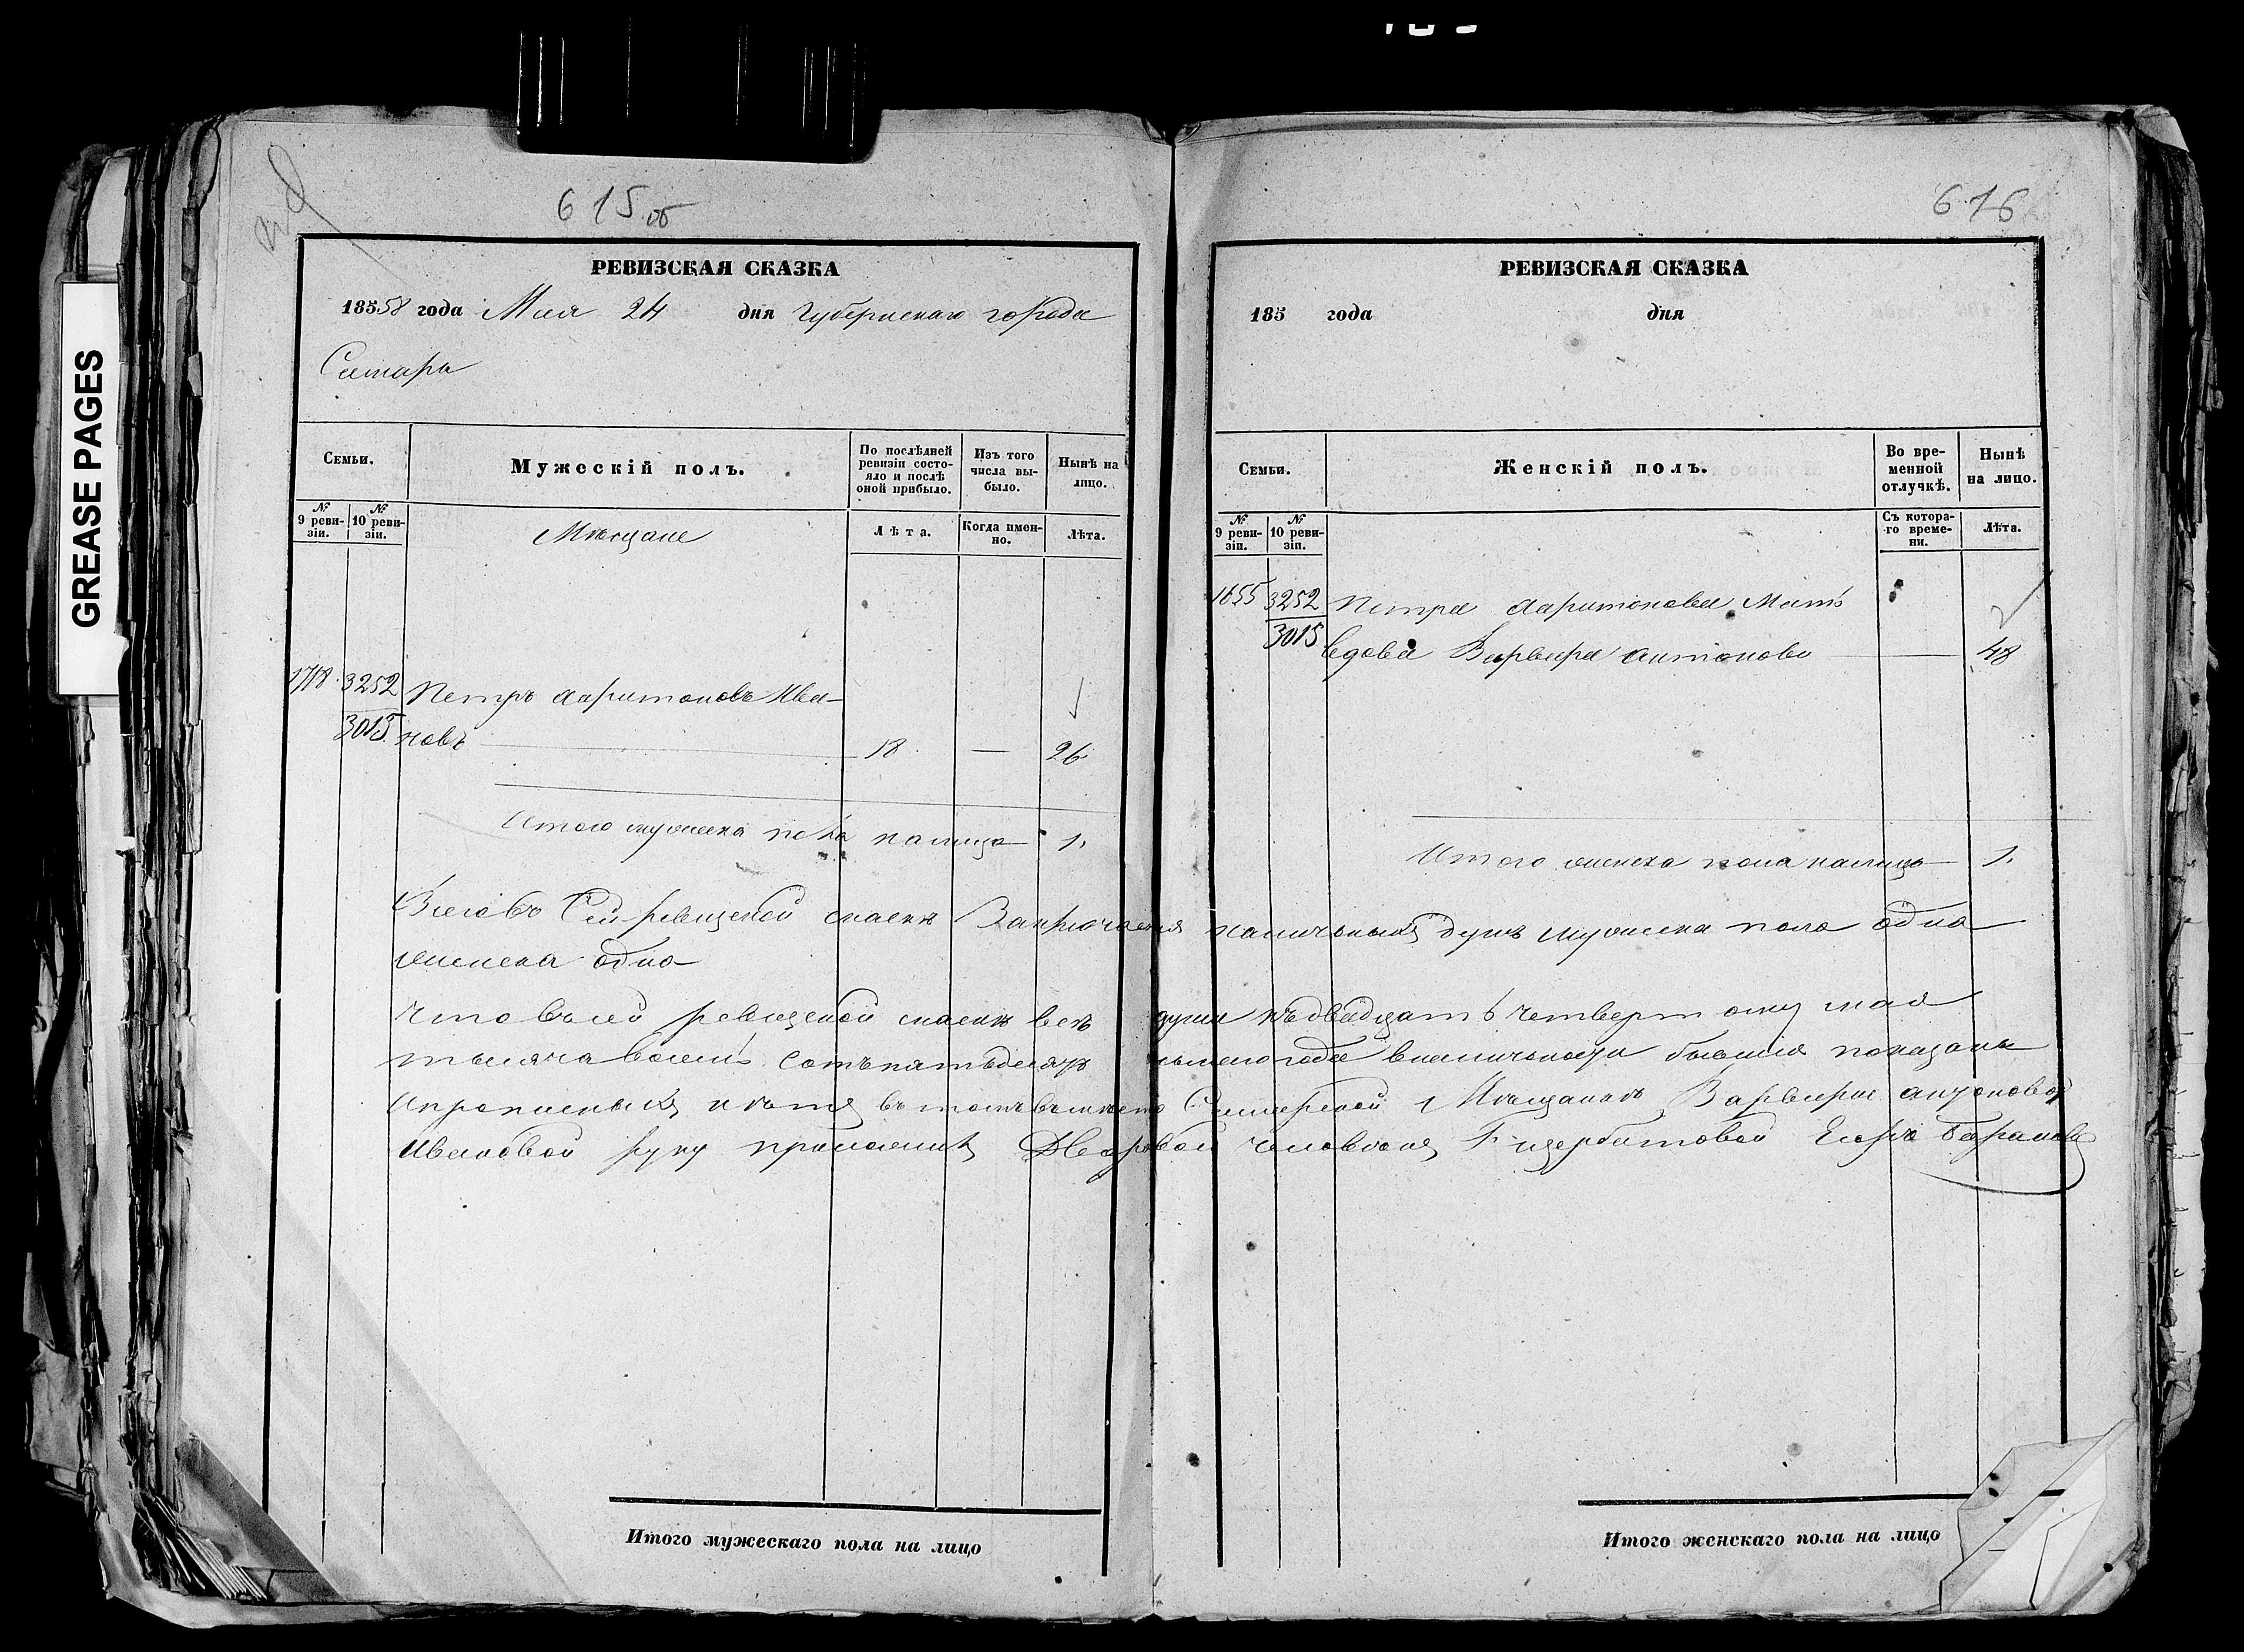 GREASE PAGES
615 об
РЕВИЗСКАЯ СКАЗКА
18558 года Мая 24 дня Губернскаго города
Самары
Семьи.
Мужескій полъ.
По послѣдней ревизіи состояло и послѣ оной прибыло.
Изъ того числа выбыло.
Нынѣ на лицо.
№ 9 ревизіи.
№ 10 ревизіи.
Мѣщане
Лѣта.
Когда именно.
Лѣта.
3252 Петръ Харитоновъ Ива-
3015 новъ 18 — 26
Итого мужеска пола налицо 1.
616
РЕВИЗСКАЯ СКАЗКА
185 года дня
Семьи.
Женскій полъ.
Во временной отлучкѣ.
Нынѣ на лицо.
№ 9 ревизіи.
№ 10 ревизіи.
Съ котораго времени.
Лѣта.
1655 3252 Петра Харитонова Мать
3015 вдова Варвара Антонова — 48
Итого женска пола налицо 1.
Всего въ Сей ревизской сказкѣ Заключается наличныхъ душъ мужеска пола одна
женска одна
Что въ сей ревизской сказкѣ всѣ души къ двадцать четвертому мая
тысяча восемь сотъ пятьдесятъ годѣ в наличности бывшія показаны
и прописныхъ нѣтъ въ томъ вмѣсто Самарской Мѣщанки Варвары Антоновой
Ивановой руку приложилъ Дворовой человѣкъ Г. Щербатовой Егоръ Барановъ
Итого мужескаго пола на лицо
Итого женскаго пола на лицо